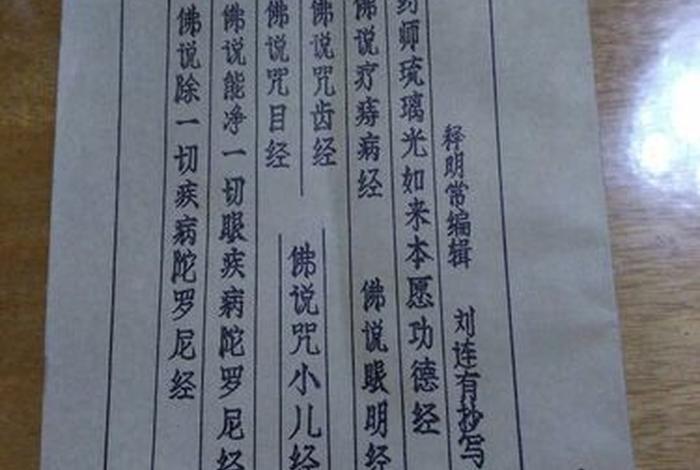 释明常编辑 刘连有抄写
药师琉璃光如来本愿功德经
佛说疗痔病经 佛说眼明经
佛说咒齿经
佛说咒小儿经
佛说咒目经
佛说能净一切眼疾病陀罗尼经
佛说除一切疾病陀罗尼经